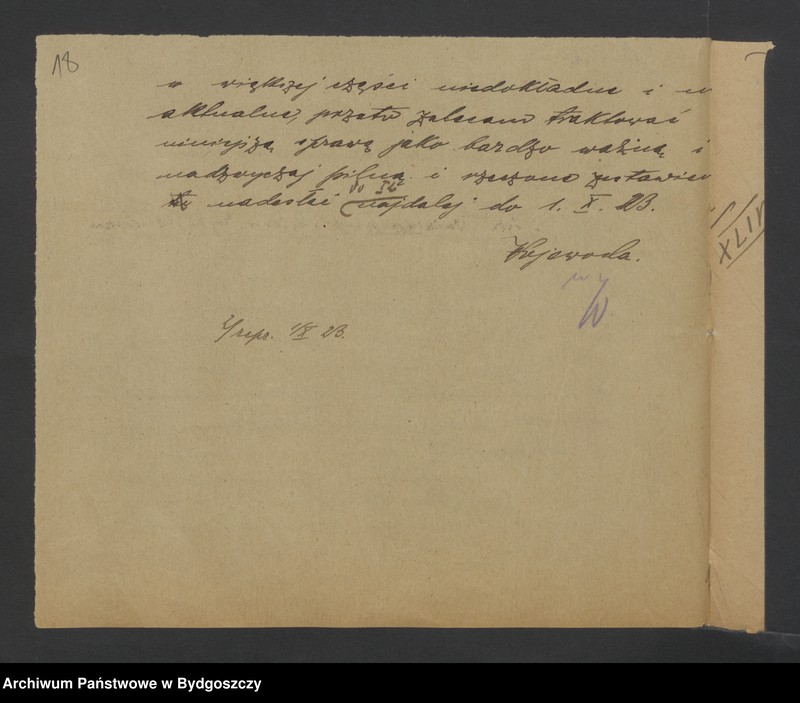 18
w większej części niedokładne i w
aktualne, przeto zalecam traktować
niniejszą sprawę jako bardzo ważną i
nadzwyczaj pilną i rzeczone zestawien
nadesłać najdalej do 1. X. 23.
Wojewoda.
W
1/X 23.
XLIV
Archiwum Państwowe w Bydgoszczy